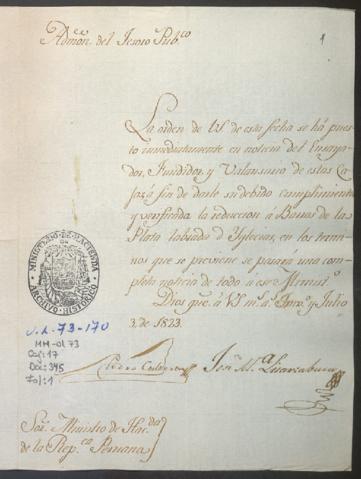 Admon. del Tesoro Pub.co
1
La orden de VS. de esta fecha se há pues
to inmediatamente en noticia del Ensaya
dor, Fundidor, y Valansario de estas Ca
jas á fin de darle su debido cumplimiento
y verificada la reduccion á Barras de la
Plata labrada de Yglesias, en los termi
nos que se previene se pasará una com
pleta noticia de todo á ese Minist.o
Dios gue. á VS m.s a.s y Julio
3. de 1823.
MINISTERIO DE HACIENDA
ARCHIVO HISTORICO
O.L. 73-170
MM-OL 73
Caj: 17
Doc: 395
Fol: 1
Jose M.a
Sor. Ministro de Hac.da
de la Rep.ca Peruana